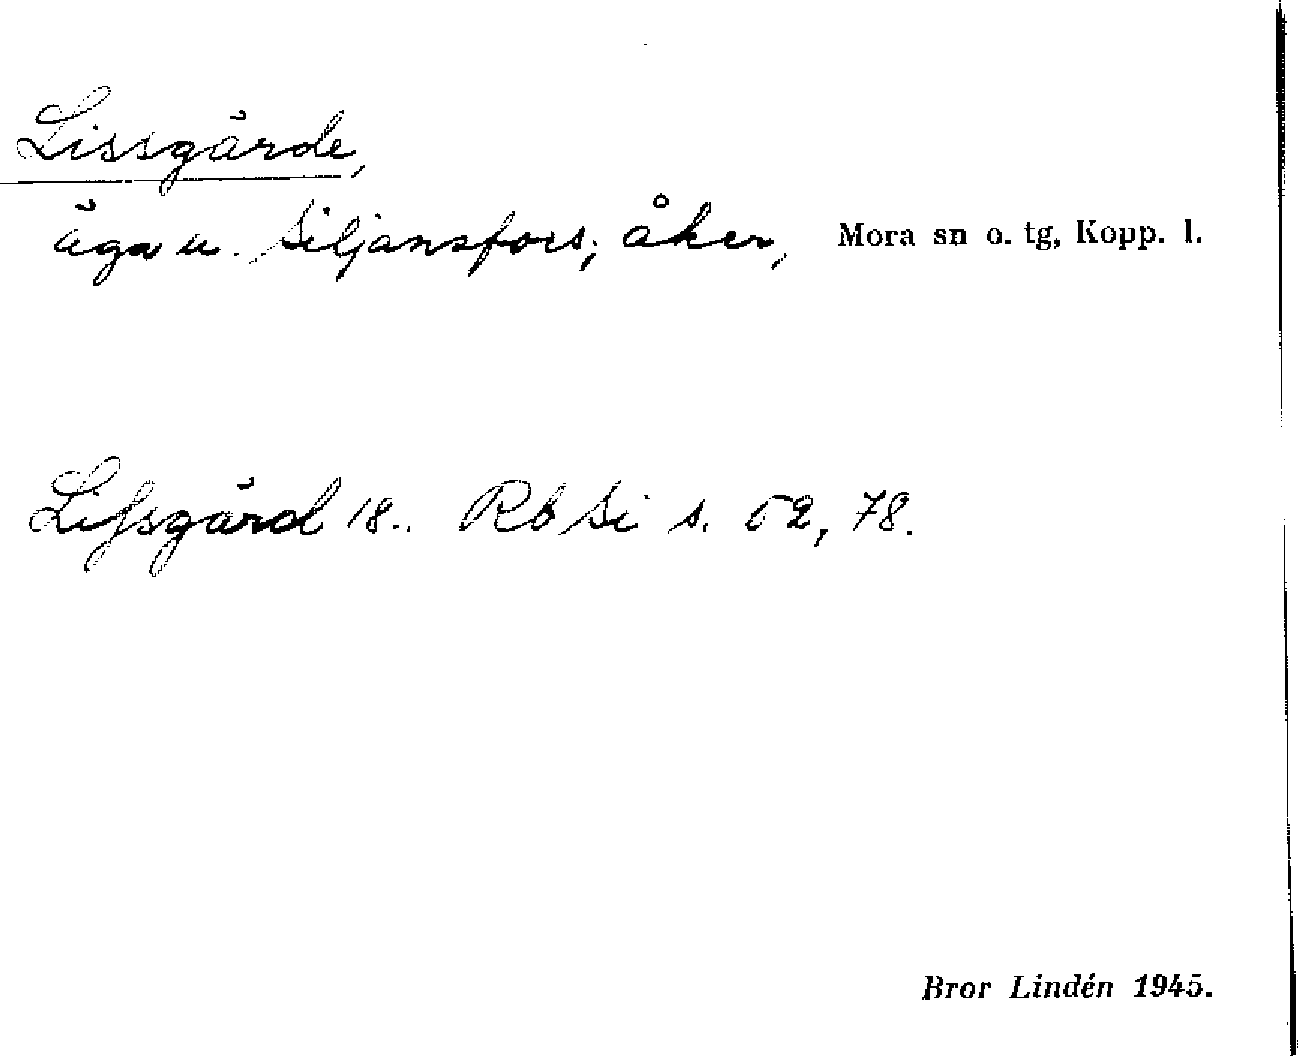 Lissgärde,
äga u. Siljansfors; åker, Mora sn o. tg, Kopp. l.
Lissgärd 18.. Rb Si s. 52, 78.
Bror Lindén 1945.